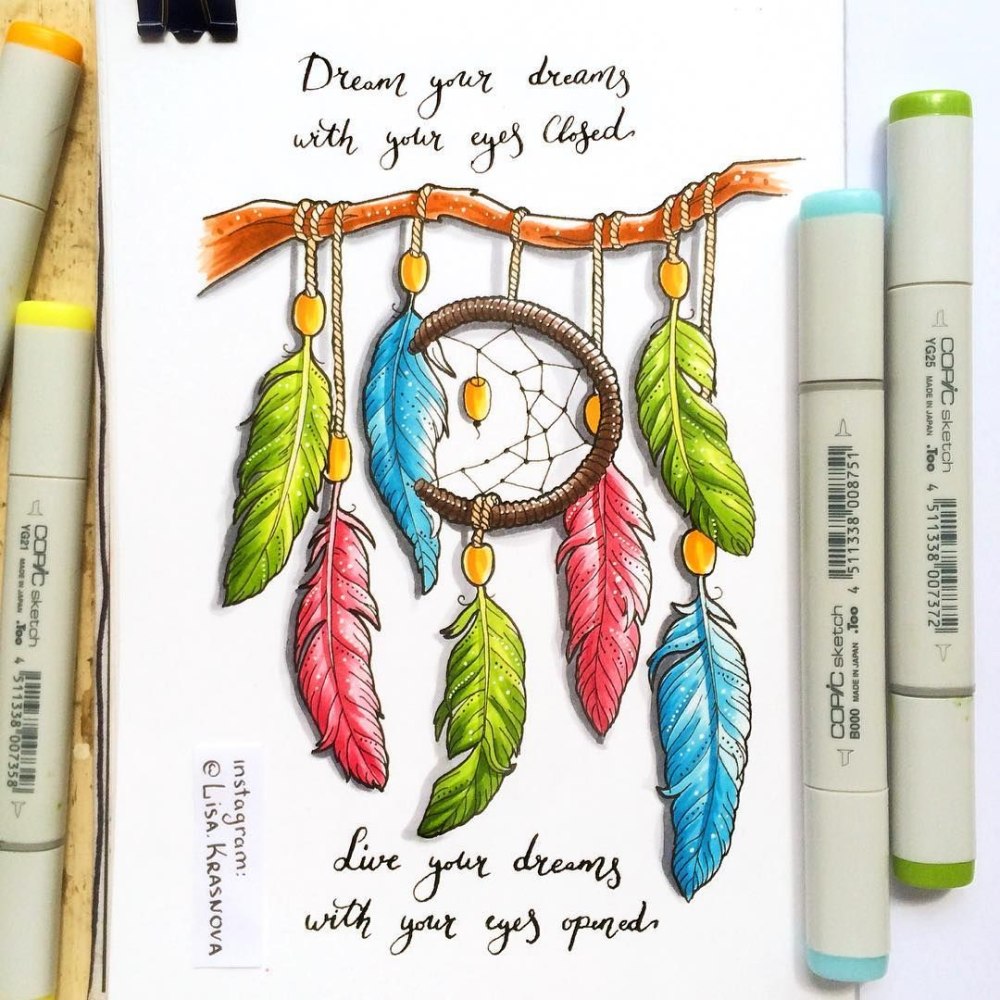 Dream your dreams
with your eyes Closed
Live your dreams
with your eyes opened
instagram:
© LISA.KRASNOVA
COPIC sketch
YG21 MADE IN JAPAN .Too
4 511338 007358
COPIC sketch
B000 MADE IN JAPAN .Too
4 511338 008751
COPIC sketch
YG25 MADE IN JAPAN .Too
4 511338 007372